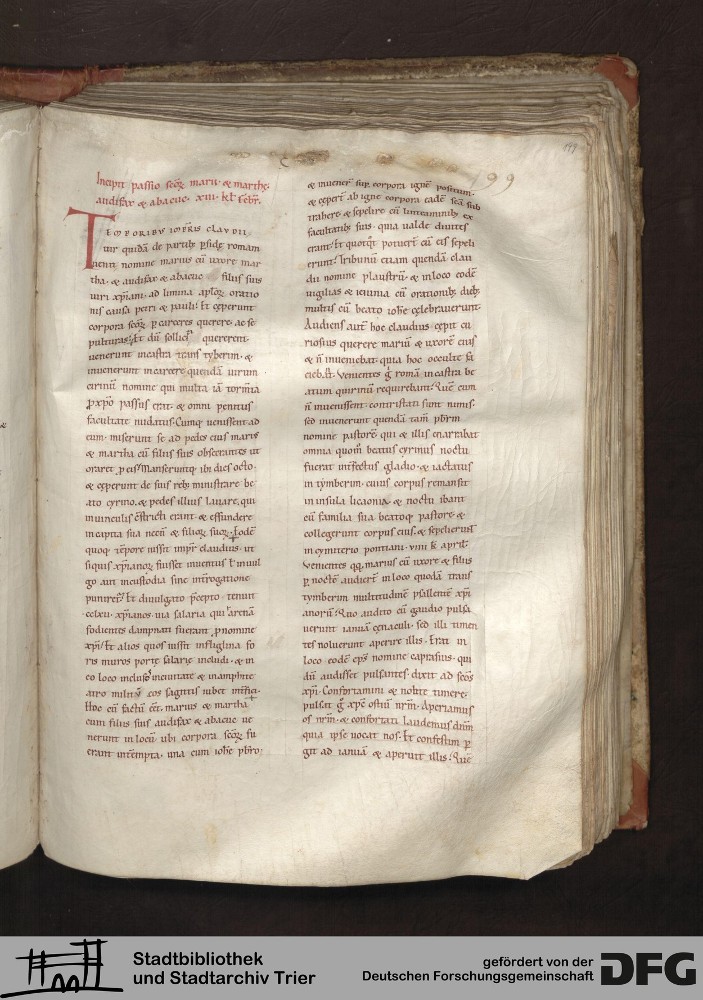 199
199
Incipit passio scōꝝ marii ⁊ marthe.
audifax ⁊ abacuc. xiii. kł febr̄.
TEMPORIBVS IMPERIS CLAVDII
uir quidā de partib; ꝑside romam
uenit nomine marius cū uxore mar
tha. & audifax & abacuc filiis suis
uiri xp̄iani. ad limina aplōꝝ oratio
nis causa petri & pauli. Et cęperunt
corpora scōꝝ ꝑ carceres querere. ac se
pulturas. Et dū sollicite quererent.
uenerunt in castra trans tyberim. &
inuenerunt in carcere quendā uirum
cirinū nomine qui multa iā tormta
ꝓ xp̄o passus erat. & omni penitus
facultate nudatus. Cumq; uenissent ad
eum. miserunt se ad pedes eius maris
& martha cū filiis suis obsecrantes ut
oraret ꝓ eis. Manseruntq; ibi dies octo.
& ceperunt de suis reb; ministrare be
ato cyrino. & pedes illius lauare. qui
in uinculis c̄stricti erant. & effundere
in capita sua necn̄ & filioꝝ suoꝝ. Eodē
quoq; tēpore iussit impr̄ claudius. ut
siquis xp̄ianoꝝ fuisset inuentus ł in uin
go aut in custodia sine int̄rogatione
puniret̄. Et diuulgato p̄cepto. tenuit
cclxii. xp̄ianos. uia salaria qui arenā
fodientes dampnati fuerant ꝓ nomine
xp̄i. Et alios quos iussit in figlina fo
ris muros porte salarię includi. & in
eo loco inclusos in ciuitate & in amphite
atro militū eos sagittis iubet int̄fici.
Hoc cū factū eēt. marius & martha
cum filiis suis audifax & abacuc ue
nerunt in locū ubi corpora scōꝝ fu
erant int̄empta. una cum ioh̄e pb̄ro.
& inuener̄ sup̄ corpora ignē positum.
& cęper̄t ab igne corpora eadē scā sub
trahere & sepelire cū linteaminib; ex
facultatib; suis. quia ualde diuites
erant. Et quotq̄t potuer̄t cū eis sepeli
erunt. Tribunū etiam quendā clau
dii nomine plastum. & in loco eodē
uigilias & ieiunia cū orationib; dieb;
multis cū beato ioh̄e celebrauerunt.
Audiens aut̄ hoc claudius. cępit cu
riosius querere mariū & uxorē eius
& n̄ inueniebat. quia hoc occulte fa
ciebāt. Venientes ḡ romā in castra be
atum quirinū requirebant. Quē cum
n̄ inuenissent. contristati sunt nimis.
sed inuenerunt quendā tam̄ pb̄rm
nomine pastorē qui & illis enarrabat
omnia quom̄ beatus cyrinus noctu
fuerat int̄fectus gladio. & iactatus
in tymberim. cuius corpus remansit
in insula licaonia. & noctu ibant
cū familia sua beatoq; pastore. &
collegerunt corpus eius. & sepelierunt̄
in cymiterio pontiani. viiii. kł april̄.
Venientes qq; marius cū uxore & filiis
ꝑ noctē. audier̄t in loco quodā trans
tymberim multitudinē psallentiū xp̄i
anorū. Quo audito cū gaudio pulsa
uerunt ianuā cęnaculi. sed illi timen
tes noluerunt aperire illis. Erat in
loco eodē ep̄s nomine capiasius. qui
dū audisset pulsantes. dixit ad scōs
xp̄i. Confortamini & nolite timere.
pulsat ḡ xp̄c ostiū nr̄m. Aperiamus
os nr̄m. & confortati laudemus dn̄m
quia ipse uocat nos. Et confestim ꝑ
git ad ianuā & aperuit illis. Quē
Stadtbibliothek
und Stadtarchiv Trier
gefördert von der
Deutschen Forschungsgemeinschaft
DFG